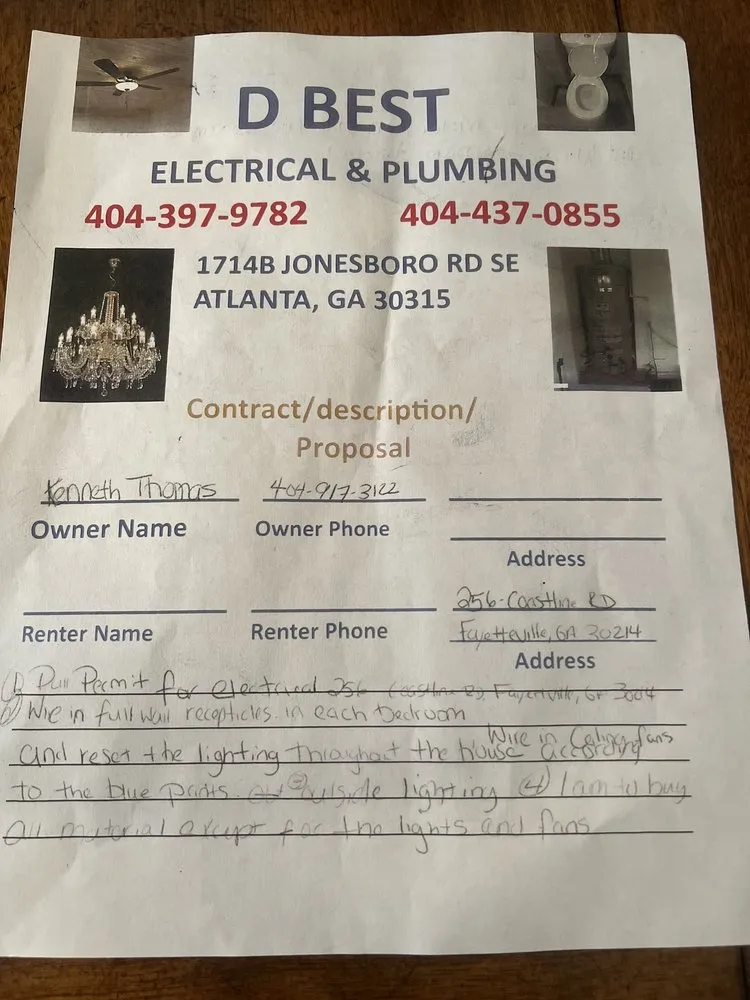 D BEST
ELECTRICAL & PLUMBING
404-397-9782 404-437-0855
1714B JONESBORO RD SE
ATLANTA, GA 30315
Contract/description/
Proposal
Kenneth Thomas 404-917-3122
Owner Name Owner Phone
Address
256-Coastline RD
Renter Name Renter Phone Fayetteville, GA 30214
Address
(1) Pull Permit for electrical 256 Coastline RD, Fayettville, GA
(2) Wire in full wall recepticles in each Bedroom
Wire in Celing fans
and reset the lighting throughout the house according
to the blue prints. (3) outside lighting (4) I am to buy
all material except for the lights and fans